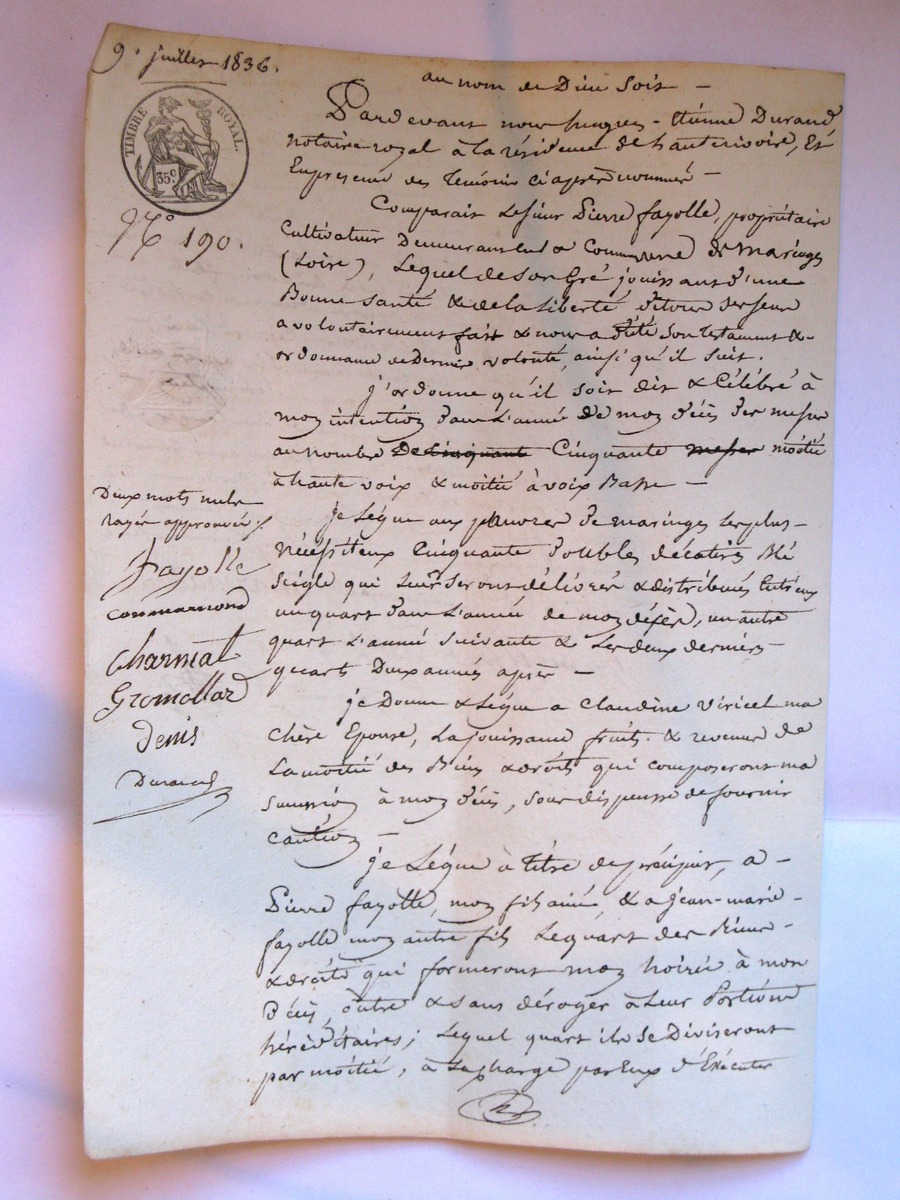 9. juillet 1836.
TIMBRE ROYAL.
35c
N° 190.
au nom de Dieu soit —
Pardevant nous hugues-Etienne Durand
notaire royal à la résidence de hauterivoire, Et
En presence des Temoins ci après nommés —
Comparait Le sieur Pierre fayolle, propriétaire
Cultivateur Demeurant en La Commune de Maringes
(Loire), Lequel de son Gré jouissant d'une
Bonne santé & de la Liberté de tous ses sens
a volontairement fait & nous a dicté son testament &
ordonnance de Derniere volonté, ainsi qu'il suit.
j'ordonne qu'il soit dit & Célébré à
mon intention dans L'année de mon décès des messes
au nombre De Cinquante Cinquante messes moitié
à haute voix & moitié à voix Basse —
je Lègue aux pauvres de maringes les plus
nécessiteux Cinquante doubles décalitres Blé
seigle qui Leur seront délivrés & distribués Entr'eux
un quart dans L'année de mon décès, un autre
quart L'année suivante & Les deux derniers
quarts Deux années après —
je Donne & Lègue a Claudine Viricel ma
chère Epouse, La jouissance fruits & revenus de
La moitié des Biens & droits qui composeront ma
succession à mon décès, sous dispense de fournir
caution —
je Lègue à titre de préciput, a
Pierre fayolle, mon fils ainé, & a jean-marie
fayolle mon autre fils Le quart des Biens
& droits qui formeront mon hoirie à mon
décès, outre & sans déroger à Leur Portions
héréditaires; Lequel quart ils se Diviseront
par moitié, à La charge par Eux d'Exécuter
Deux mots nuls
rayés approuvés /.
fayolle
Commarmond
Charmat
Gromollard
Denis
Durand